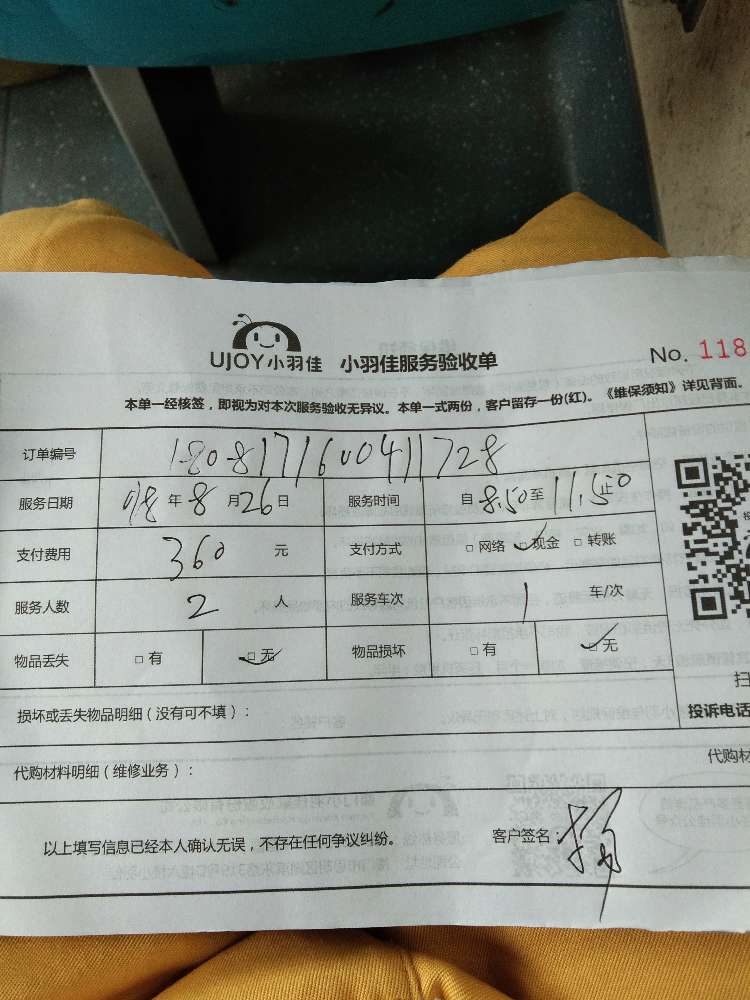 UJOY小羽佳 小羽佳服务验收单 No. 118
本单一经核签，即视为对本次服务验收无异议。本单一式两份，客户留存一份(红)。《维保须知》详见背面。
订单编号 180817160041728
服务日期 018 年 8 月 26 日 服务时间 自 8.50 至 11.50 止
支付费用 360 元 支付方式 □ 网络 □ 现金 □ 转账
服务人数 2 人 服务车次 1 车/次
物品丢失 □ 有 □ 无 物品损坏 □ 有 □ 无
损坏或丢失物品明细（没有可不填）：
扫
投诉电话
代购材料明细（维修业务）：
代购材
以上填写信息已经本人确认无误，不存在任何争议纠纷。 客户签名： 杨